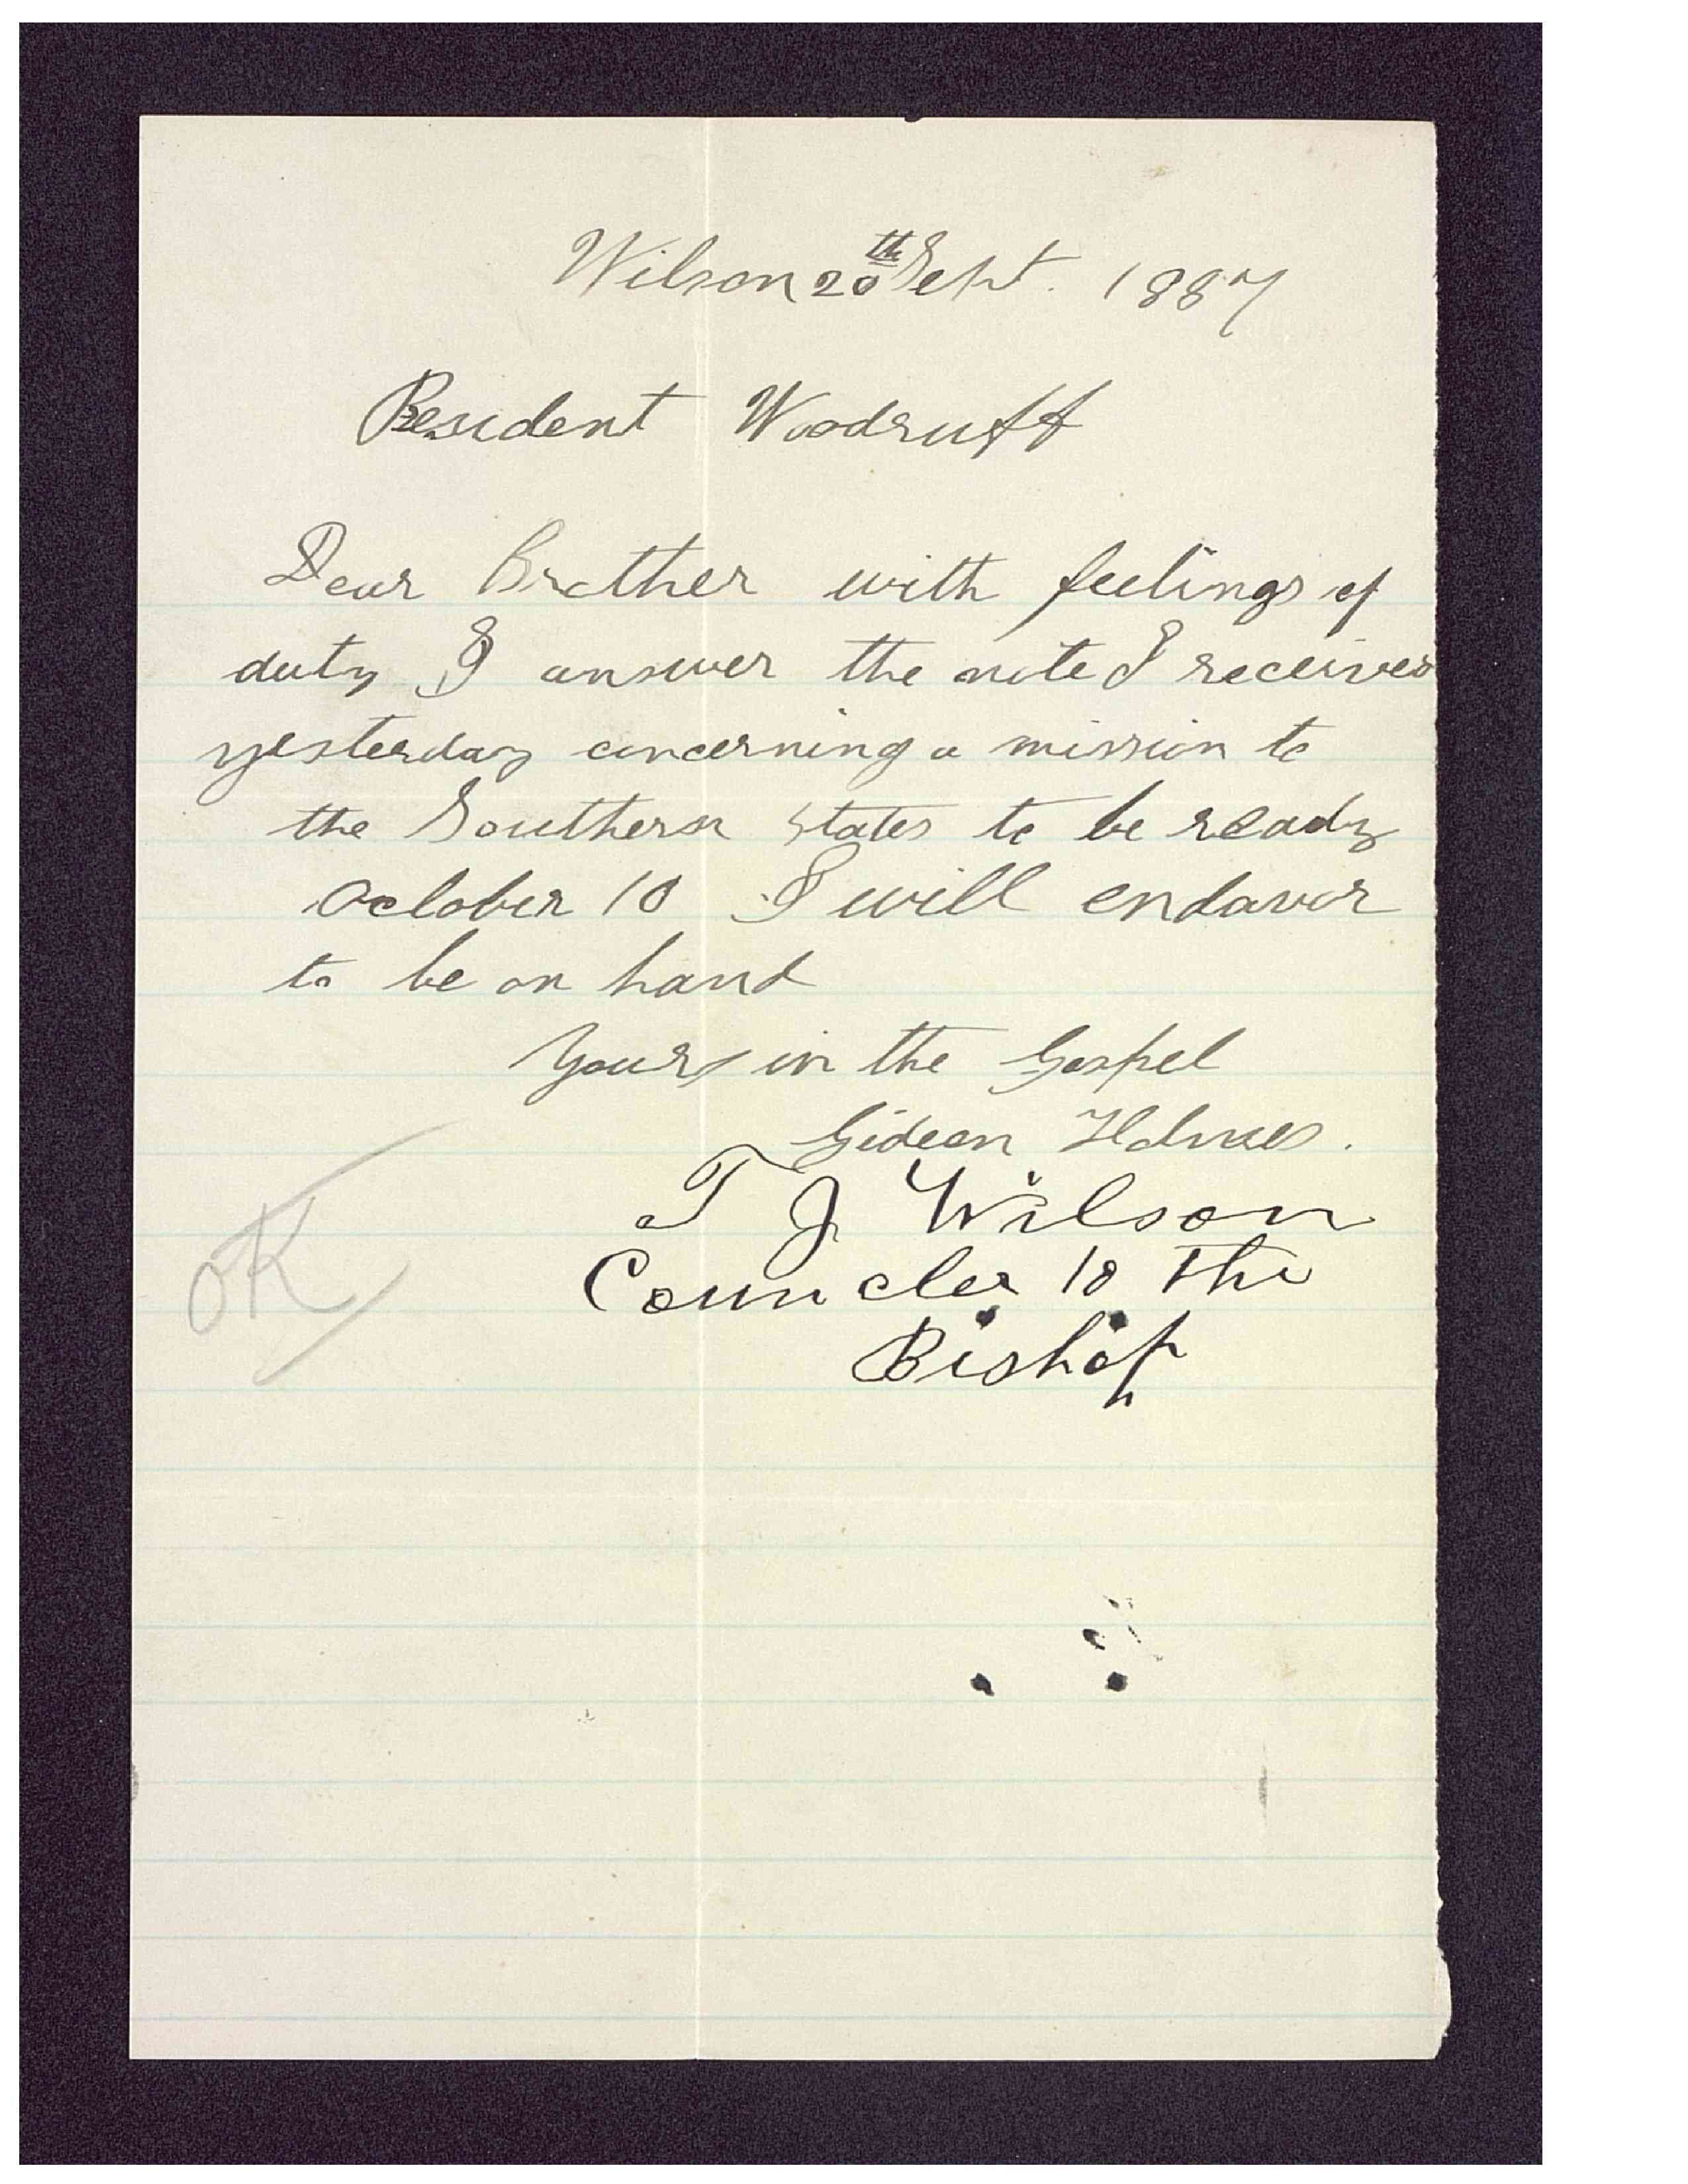 Wilson 20th Sept. 1887
President Woodruff
Dear Brother with feelings of
duty I answer the note I received
yesterday concerning a mission to
the Southern States to be ready
October 10 I will endavor
to be on hand
Yours in the Gospel
Gideon Holmes.
T J Wilson
Councler to the
Bishop
OK